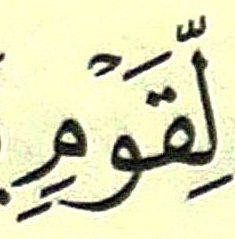 لِّقَوْمٍ